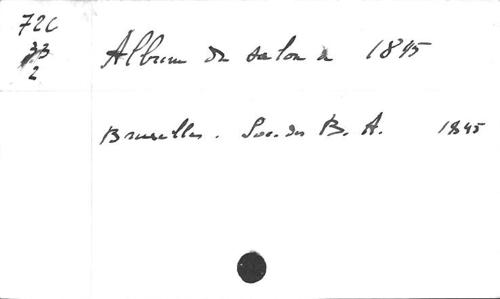 72C
33
2
Album du salon de 1845
Bruxelles. Soc. des B. A. 1845